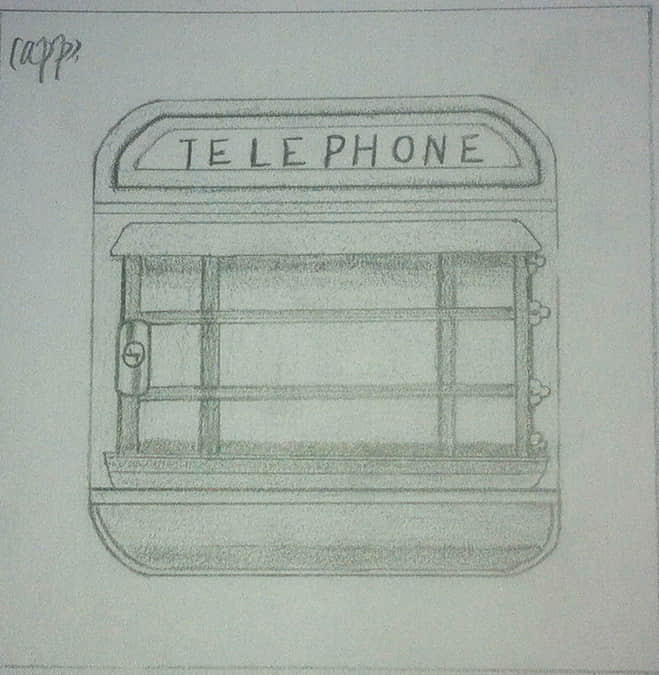 (app)
TELEPHONE